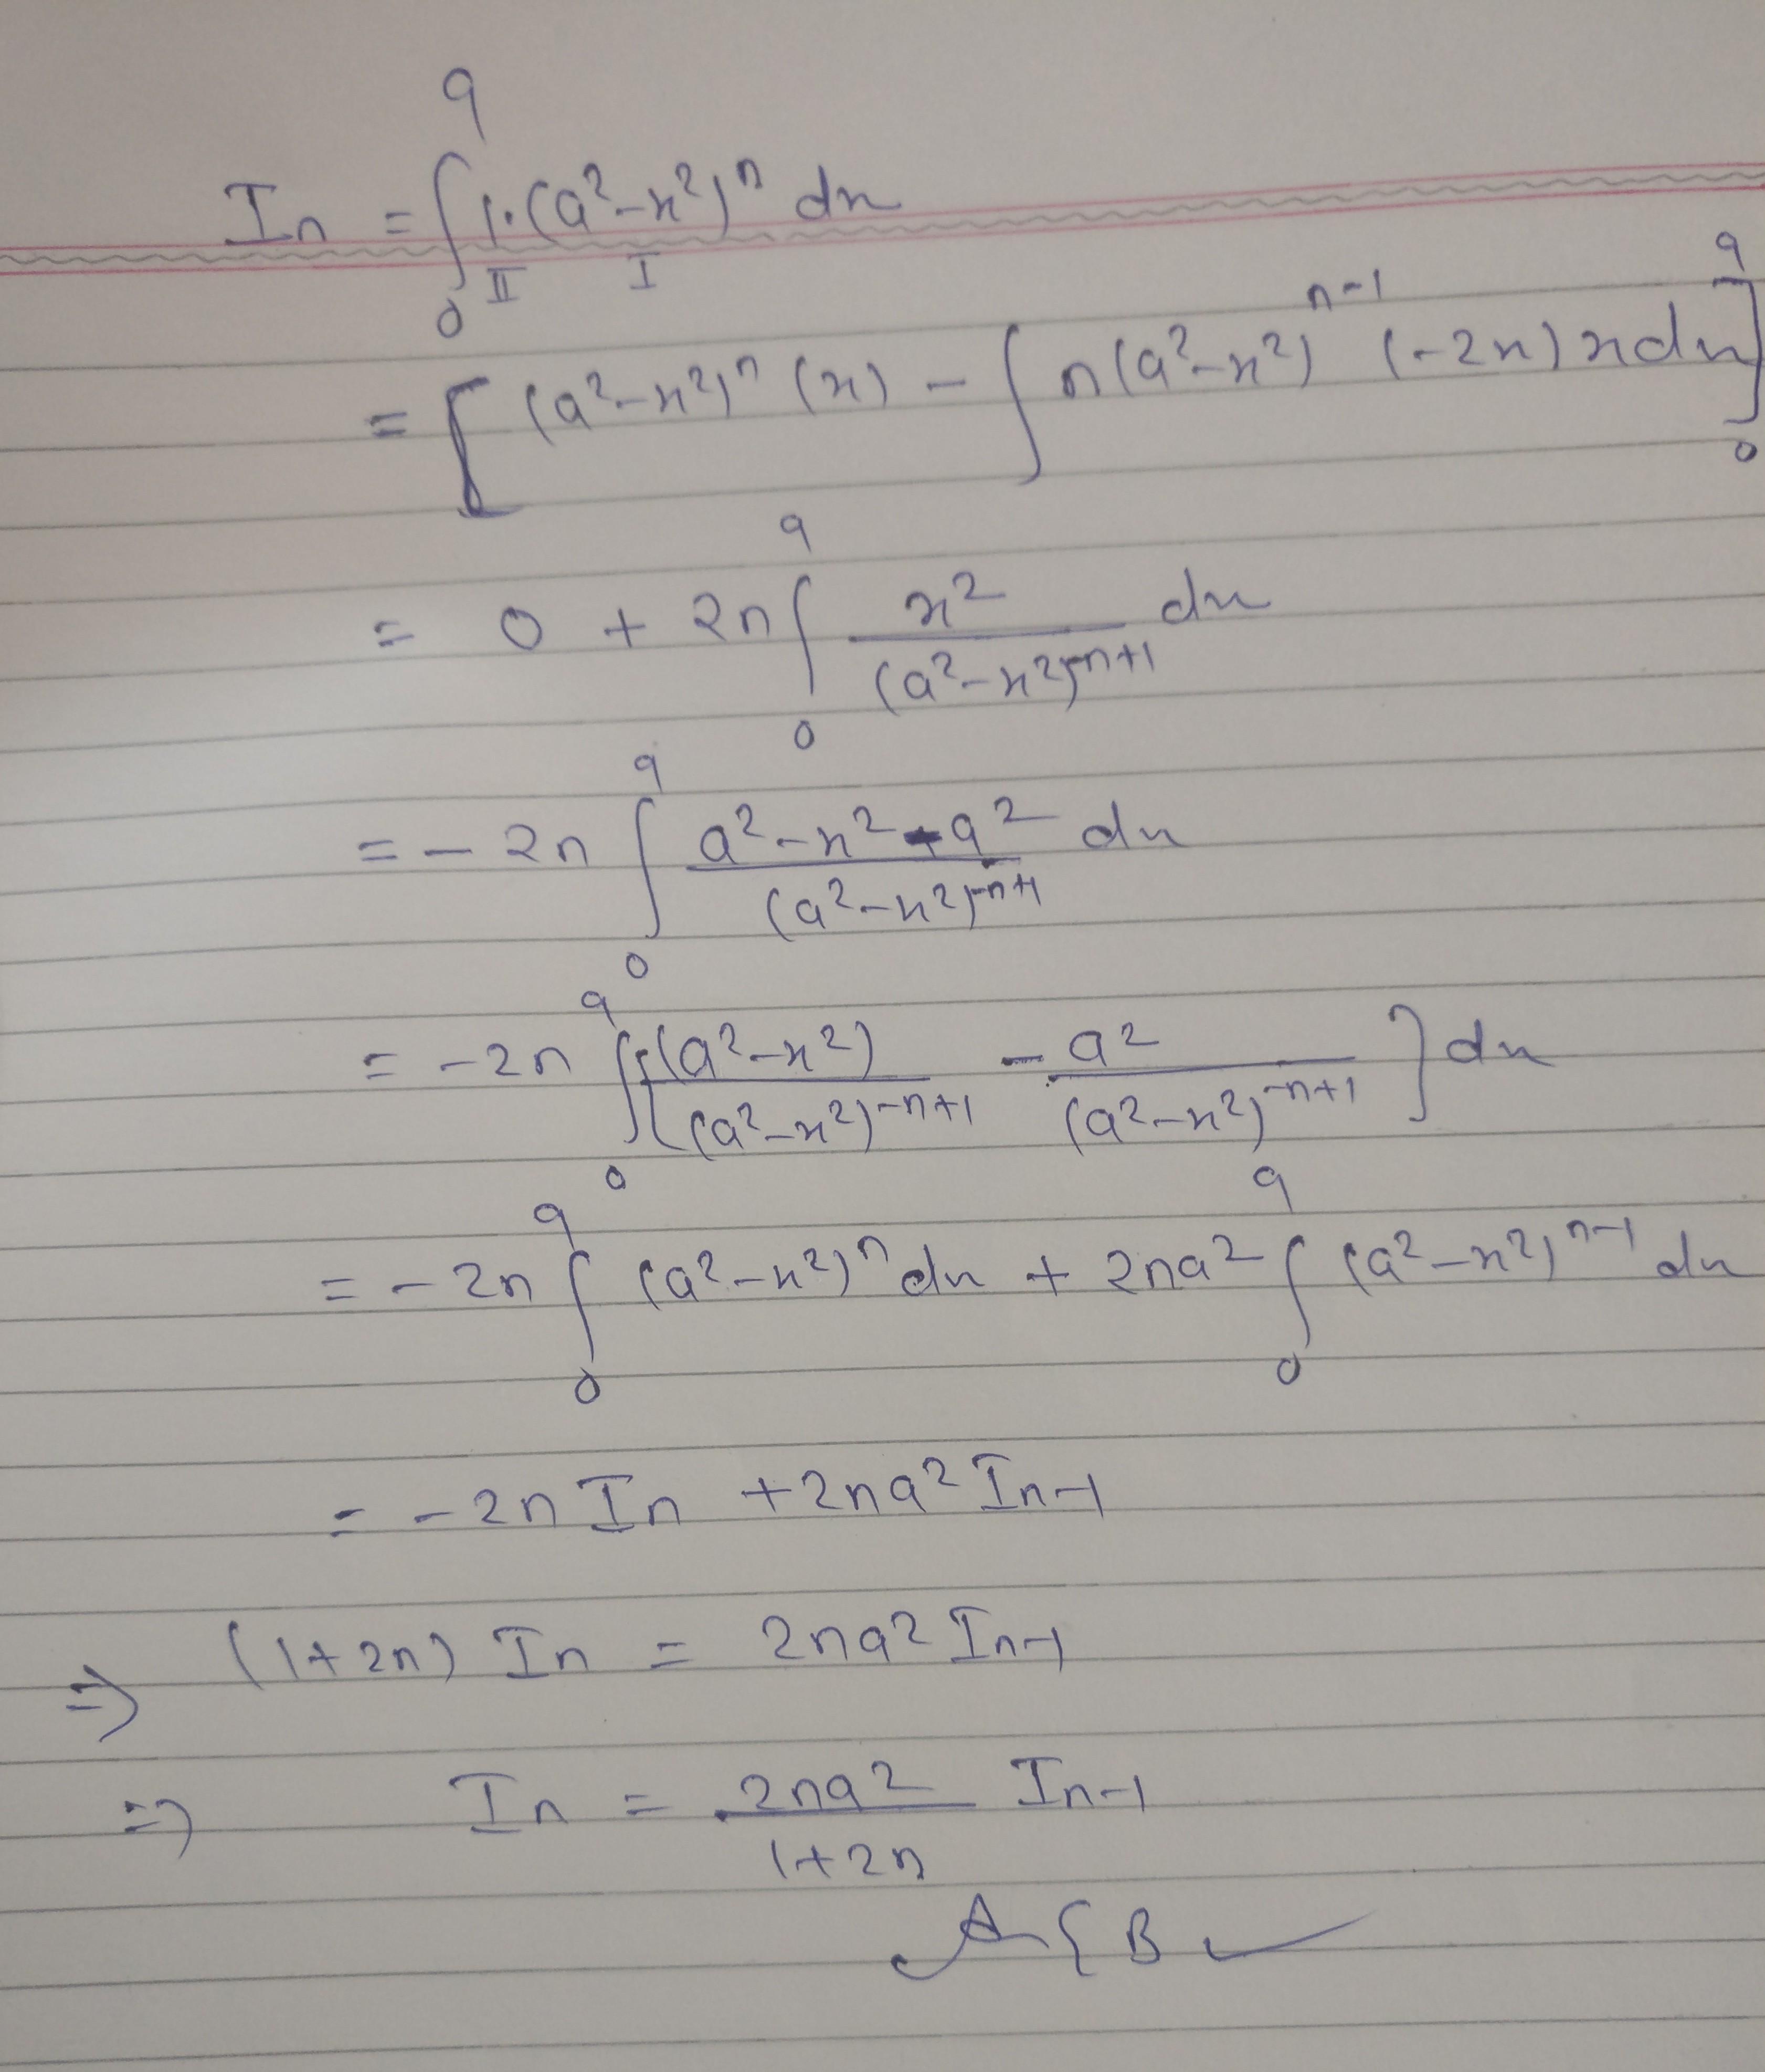 Iₙ = ∫₀ᵃ 1·(a²-x²)ⁿ dx
II I
= [(a²-x²)ⁿ (x) - ∫ n(a²-x²)ⁿ⁻¹ (-2x) x dx]₀ᵃ
= 0 + 2n ∫₀ᵃ x²/(a²-x²)⁻ⁿ⁺¹ dx
= - 2n ∫₀ᵃ (a²-x²-a²)/(a²-x²)⁻ⁿ⁺¹ dx
= -2n ∫₀ᵃ [(a²-x²)/(a²-x²)⁻ⁿ⁺¹ - a²/(a²-x²)⁻ⁿ⁺¹] dx
= - 2n ∫₀ᵃ (a²-x²)ⁿ dx + 2na² ∫₀ᵃ (a²-x²)ⁿ⁻¹ dx
= - 2n Iₙ + 2na² Iₙ₋₁
⇒ (1+2n) Iₙ = 2na² Iₙ₋₁
⇒ Iₙ = 2na²/(1+2n) Iₙ₋₁
A & B ✓